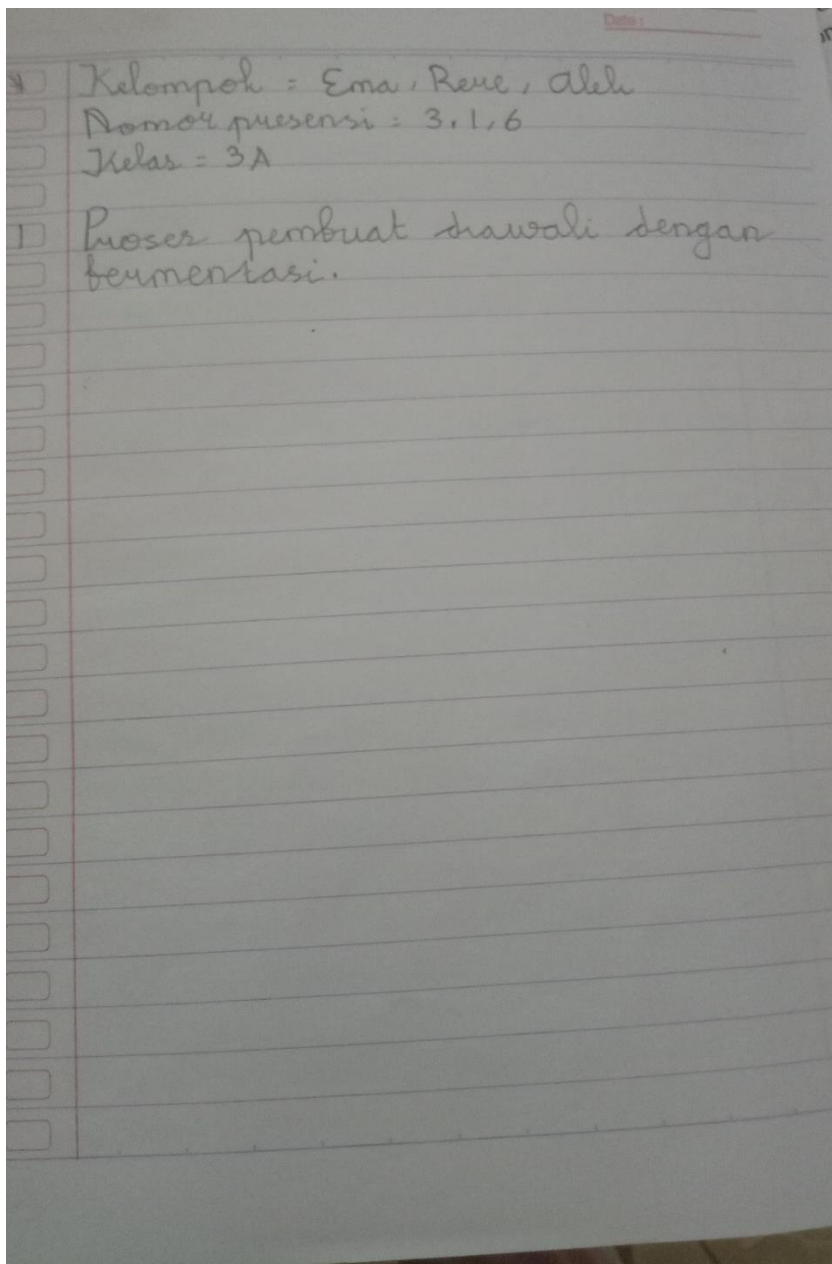 Date:
Kelompok = Ema, Rere, Aleh
Nomor presensi = 3, 1, 6
Kelas = 3A
1 Proses pembuat diawali dengan
fermentasi.